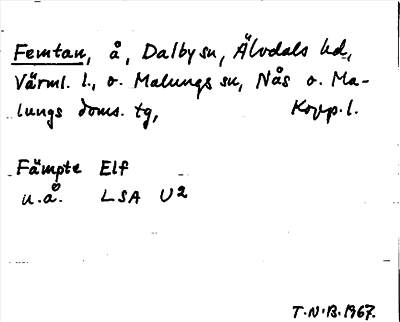 Femtan, å, Dalby sn, Älvdals hd,
Värml. l., o. Malungs sn, Nås o. Ma-
lungs doms. tg, Kopp. l.
Fämpte Elf
u.å. LSA U2
T.N.B. 1967.